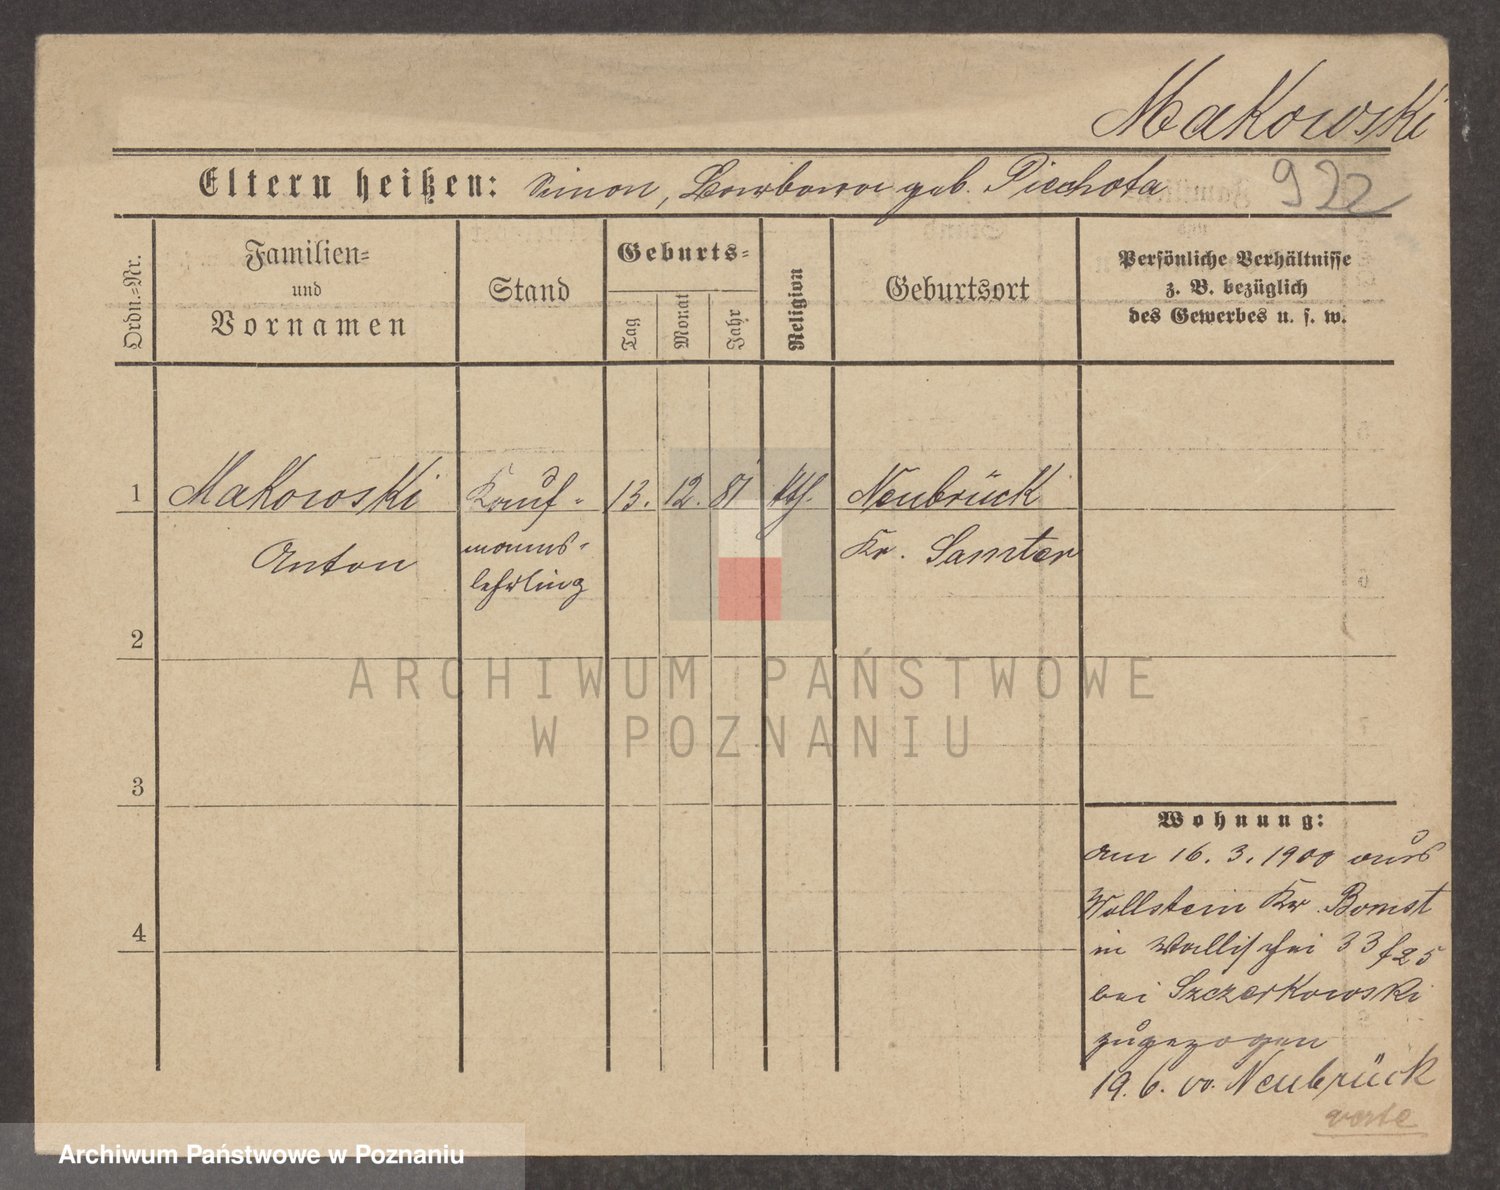 Makowski
Eltern heißen: Simon, Barbara geb. Piechota
922
Ordn.-Nr.
Familien-
und
Vornamen
Stand
Geburts-
Tag
Monat
Jahr
Religion
Geburtsort
Persönliche Verhältnisse
z. B. bezüglich
des Gewerbes u. s. w.
1 Makowski Kauf- 13. 12. 81 kth. Neubrück
Anton manns- Kr. Samter
lehrling
2
3
4
Wohnung:
Am 16. 3. 1900 aus
Wollstein Kr. Bomst
in Wallischei 33
bei Szczerkowski
zugezogen
19. 6. 00. Neubrück
verte
ARCHIWUM PAŃSTWOWE
W POZNANIU
Archiwum Państwowe w Poznaniu